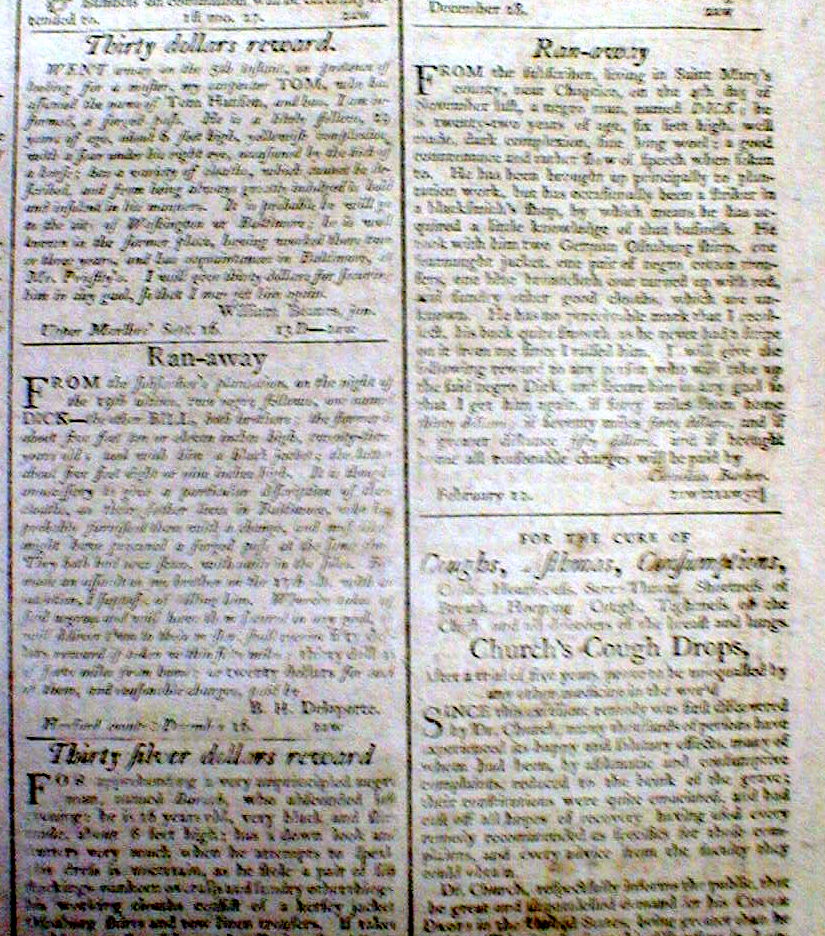 tended to. 1st mo. 27.
Thirty dollars reward.
WENT away on the 5th instant, on pretence of
looking for a master, my carpenter TOM, who has
assumed the name of Tom and has, I am in-
formed, a forged pass. He is a likely fellow,
years of age, about 6 feet high, yellowish complexion,
with a scar under his right eye, occasioned by the kick of
a horse; has a variety of cloaths, which cannot be de-
scribed, and from being always greatly indulged is bold
and in his manners. It is probable he will go
to the city of Washington or Baltimore; he is well
known in the former place, having worked there two
or three years, and has acquaintances in Baltimore, at
Mr. I will give thirty dollars for securing
him in any gaol, so that I may get him again.
William jun.
Upper Marlbro' Sept. 16. 13D—
Ran-away
FROM the subscriber's plantation, on the night of
the 19th ultimo, two negro fellows, one named
DICK—the other BILL, both brothers; the former is
about five feet ten or eleven inches high, twenty-three
years old; and with him a black jacket; the latter
about five feet eight or nine inches high. It is thought
unnecessary to give a particular description of their
cloaths, as their father lives in Baltimore, who has
probably furnished them with a change, and
might have procured a forged pass at the same time.
They both had
made an assault on my brother on the 17th ult. with an
intention, I suppose, of killing him. Whoever takes
said negroes and will have them secured in any gaol, or
will deliver them to shall receive fifty dol-
lars reward if taken in this thirty dollars
if forty miles from home; or twenty dollars for
of them, and reasonable charges, paid by
B. H. Delaporte.
Harford county December 26.
Thirty silver dollars reward
FOR apprehending a very unprincipled negro
man, named who absconded last
evening: he is 26 years old, very black and
made, about 6 feet high; has a down look and
very much when he attempts to speak
his dress is uncertain, as he stole a pair of silk
stockings nankeen overalls and sundry other things
his working cloaths consist of a kersey jacket
Oznaburg shirts and tow linen trousers. If taken
December 28.
Ran-away
FROM the subscriber, living in Saint Mary's
county, near Chaptico, on the 4th day of
November last, a negro man, named DICK; he
is twenty-two years of age, six feet high, well
made, dark complexion, has long wool; a good
countenance and rather slow of speech when spoken
to. He has been brought up principally to plan-
tation work, but has occasionally been a striker in
a blacksmith's shop, by which means he has ac-
quired a little knowledge of that business. He
took with him two German Oznaburg shirts, one
jacket, one pair of negro cotton trou-
sers, one blue coat turned up with red,
and sundry other good cloaths, which are un-
known. He has no perceivable mark that I recol-
lect, his back quite smooth, as he never had a stripe
on it from me since I raised him. I will give the
following reward to any person who will take up
the said negro Dick, and secure him in any gaol so
that I get him again, if forty miles from home
thirty dollars, if seventy miles forty dollars, and if
a greater distance fifty dollars, and if brought
home all reasonable charges will be paid by
Cornelius Barber.
February 12.
FOR THE CURE OF
Coughs, Asthmas, Consumptions,
Colds, Hoarseness, Sore Throat, Shortness of
Breath, Hooping Cough, Tightness of the
Chest, and all disorders of the breast and lungs.
Church's Cough Drops,
After a trial of five years, prove to be unequalled by
any other medicine in the world
SINCE this excellent remedy was first discovered
by Dr. Church, many thousands of persons have
experienced its happy and salutary effects, many of
whom had been, by asthmatic and consumptive
complaints, reduced to the brink of the grave;
their constitutions were quite emaciated, and had
cast off all hopes of recovery having used every
remedy recommended as specifics for those com-
plaints, and every advice from the faculty they
could obtain.
Dr. Church, respectfully informs the public, that
the great and unparalelled demand for his Cough
Drops in the United States, being greater than he